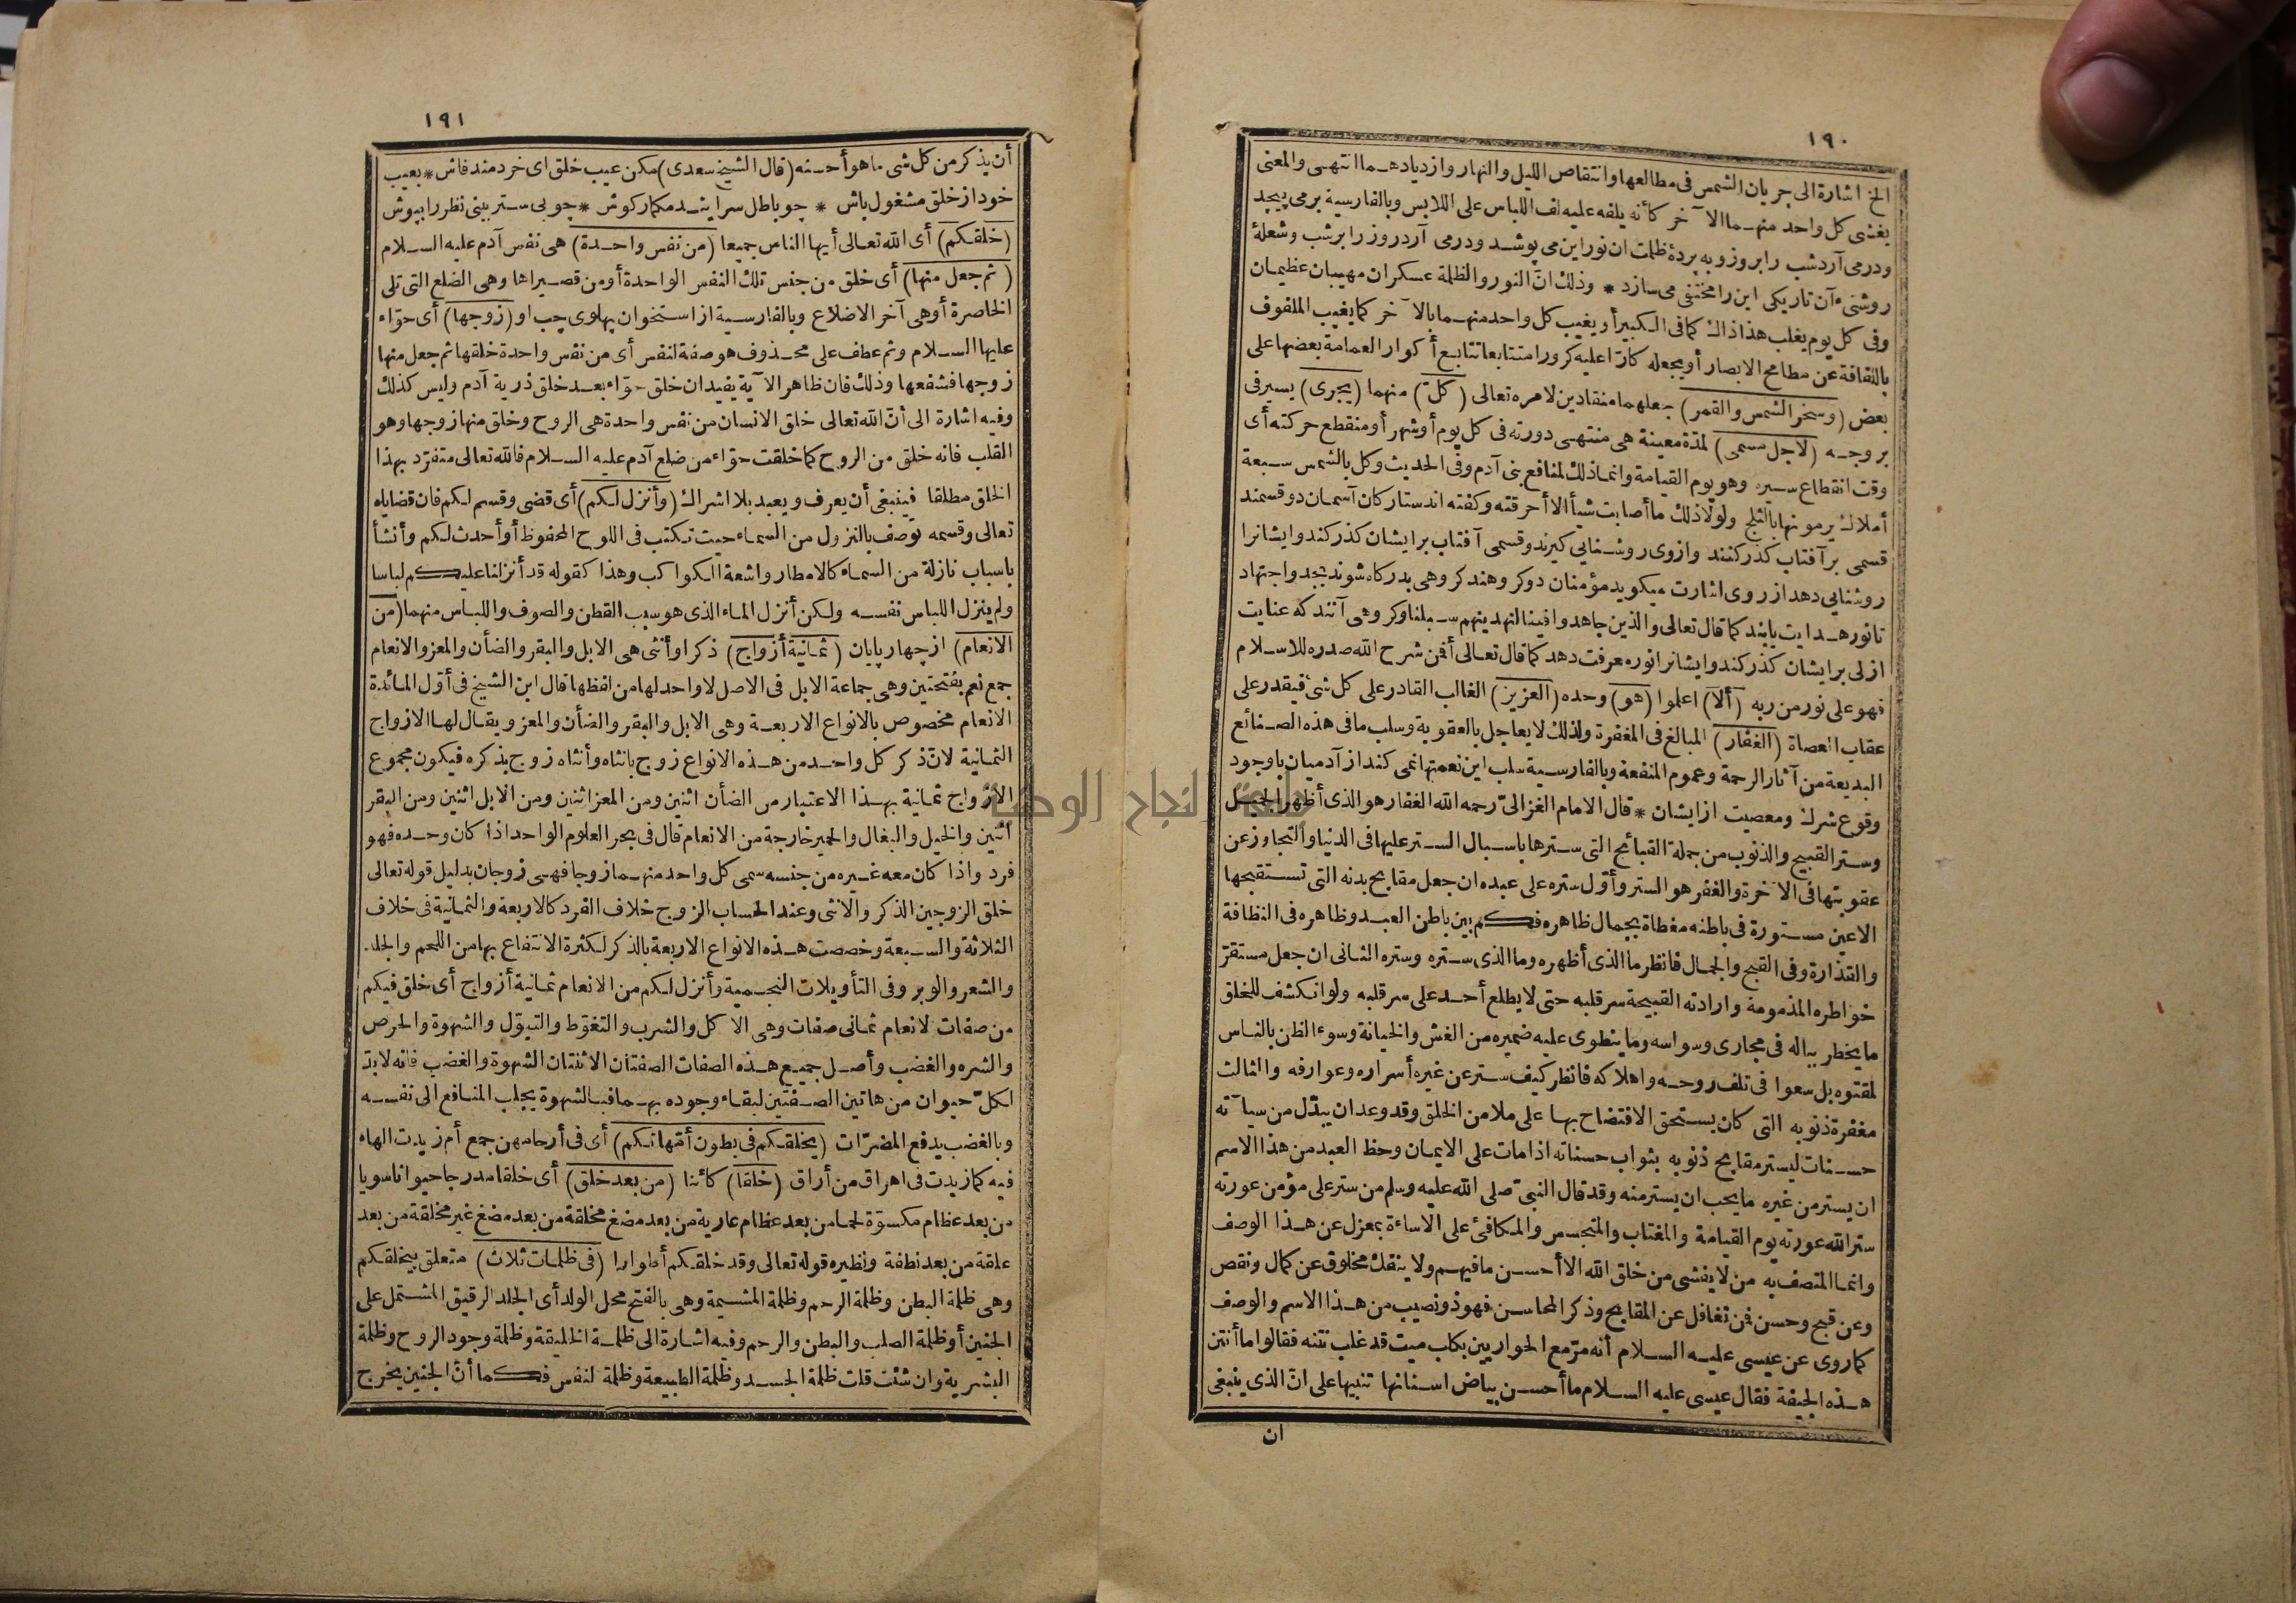 ١٩٠
الخ اشارة الى جريان الشمس فى مطالعها وانتقاص الليل والنهار وازديادهما انتهى والمعنى
يغشى كل واحد منهما الآخر كأنه يلفه عليه لف اللباس على اللابس وبالفارسية برمى پيچد
ودرمى آرد شب را بروز وبه پردهٔ ظلمت ان نور اين مى پوشد ودرمى آرد روز را برشب وشعلهٔ
روشنىء آن تاريكى اين را مختفى مى سازد * وذلك انّ النور والظلمة عسكران مهيبان عظيمان
وفى كل يوم يغلب هذا ذاك كما فى الكبير أو يغيب كل واحد منهما بالآخر كما يغيب الملفوف
باللفافة عن مطامح الابصار أو يجعله كارّا عليه كرورا متتابعا تتابع أكوار العمامة بعضها على
بعض (وسخر الشمس والقمر) جعلهما منقادين لامره تعالى (كلّ) منهما (يجرى) يسير فى
بروجه (لاجل مسمى) لمدّة معينة هى منتهى دورته فى كل يوم أو شهر أو منقطع حركته أى
وقت انقطاع سيره وهو يوم القيامة وانما ذلك لمنافع بنى آدم وفى الحديث وكل بالشمس سبعة
أملاك يرمونها بالثلج ولولا ذلك ما أصابت شيأ الا أحرقته وكفته اند ستاركان آسمان دو قسمند
قسمى برآفتاب كذر كنند وازوى روشنايى كيرند وقسمى آفتاب برايشان كذر كند وايشانرا
روشنايى دهد از روى اشارت ميكويد مؤمنان دو كروهند كروهى بدركاه شوند بجد واجتهاد
تا نور هدايت يابند كما قال تعالى والذين جاهدوا فينا لنهدينهم سبلنا وكروهى آنند كه عنايت
ازلى برايشان كذر كند وايشانرا نوره معرفت دهد كما قال تعالى أفمن شرح الله صدره للاسلام
فهو على نور من ربه (ألا) اعلموا (هو) وحده (العزيز) الغالب القادر على كل شئ فيقدر على
عقاب العصاة (الغفار) المبالغ فى المغفرة ولذلك لا يعاجل بالعقوبة وسلب ما فى هذه الصنائع
البديعة من آثار الرحمة وعموم المنفعة وبالفارسية سلب اين نعمتها نمى كند از آدميان باوجود
وقوع شرك ومعصيت ازايشان * قال الامام الغزالىّ رحمه الله الغفار هو الذى أظهر الجميل
وستر القبيح والذنوب من جملة القبائح التى سترها باسبال الستر عليها فى الدنيا والتجاوز عن
عقوبتها فى الآخرة والغفر هو الستر وأوّل ستره على عبده ان جعل مقابح بدنه التى تستقبحها
الاعين مستورة فى باطنه مغطاة بجمال ظاهره فكم بين باطن العبد وظاهره فى النظافة
والقذارة وفى القبح والجمال فانظر ما الذى أظهره وما الذى ستره وستره الثانى ان جعل مستقرّ
خواطره المذمومة وارادته القبيحة سر قلبه حتى لا يطلع أحد على سر قلبه ولو انكشف للخلق
ما يخطر بباله فى مجارى وسواسه وما ينطوى عليه ضميره من الغش والخيانة وسوء الظن بالناس
لمقتوه بل سعوا فى تلف روحه واهلاكه فانظر كيف ستر عن غيره أسراره وعوارفه والثالث
مغفرة ذنوبه التى كان يستحق الافتضاح بها على ملا من الخلق وقد وعد ان يبدّل من سيآته
حسنات ليستر مقابح ذنوبه بثواب حسناته اذا مات على الايمان وحظ العبد من هذا الاسم
ان يستر من غيره ما يحب ان يستر منه وقد قال النبىّ صلى الله عليه وسلم من ستر على مؤمن عورته
ستر الله عورته يوم القيامة والمغتاب والمتجسس والمكافئ على الاساءة بمعزل عن هذا الوصف
وانما المتصف به من لا يفشى من خلق الله الا أحسن ما فيهم ولا ينفك مخلوق عن كمال ونقص
وعن قبح وحسن فمن تغافل عن المقابح وذكر المحاسن فهو ذو نصيب من هذا الاسم والوصف
كما روى عن عيسى عليه السلام أنه مرّ مع الحواريين بكلب ميت قد غلب نتنه فقالوا ما أنتن
هذه الجيفة فقال عيسى عليه السلام ما أحسن بياض اسنانها تنبيها على انّ الذى ينبغى
ان
١٩١
أن يذكر من كل شى ما هو أحسنه (قال الشيخ سعدى) مكن عيب خلق اى خردمند فاش * بعيب
خود از خلق مشغول باش * چو باطل سرايند مكمار كوش * چو بى ستر بينى نظر را بپوش
(خلقكم) أى الله تعالى أيها الناس جميعا (من نفس واحدة) هى نفس آدم عليه السلام
(ثم جعل منها) أى خلق من جنس تلك النفس الواحدة أو من قصيراها وهى الضلع التى تلى
الخاصرة أو هى آخر الاضلاع وبالفارسية از استخوان پهلوى چپ او (زوجها) أى حوّاء
عليها السلام وثم عطف على محذوف هو صفة لنفس أى من نفس واحدة خلقها ثم جعل منها
زوجها فشفعها وذلك فان ظاهر الآية يفيد ان خلق حوّاء بعد خلق ذرية آدم وليس كذلك
وفيه اشارة الى أنّ الله تعالى خلق الانسان من نفس واحدة هى الروح وخلق منها زوجها وهو
القلب فانه خلق من الروح كما خلقت حوّاء من ضلع آدم عليه السلام فالله تعالى متفرّد بهذا
الخلق مطلقا فينبغى أن يعرف ويعبد بلا اشراك (وأنزل لكم) أى قضى وقسم لكم فان قضاياه
تعالى وقسمه توصف بالنزول من السماء حيث تكتب فى اللوح المحفوظ أو أحدث لكم وأنشأ
باسباب نازلة من السماء كالامطار واشعة الكواكب وهذا كقوله قد أنزلنا عليكم لباسا
ولم ينزل اللباس نفسه ولكن أنزل الماء الذى هو سبب القطن والصوف واللباس منهما (من
الانعام) از چهار پايان (ثمانية أزواج) ذكرا وأنثى هى الابل والبقر والضأن والمعز والانعام
جمع نعم بفتحتين وهى جماعة الابل فى الاصل لا واحد لها من لفظها قال ابن الشيخ فى أوّل المائدة
الانعام مخصوص بالانواع الاربعة وهى الابل والبقر والضأن والمعز ويقال لها الازواج
الثمانية لانّ ذكر كل واحد من هذه الانواع زوج بانثاه وأنثاه زوج بذكره فيكون مجموع
الازواج ثمانية بهذا الاعتبار من الضأن اثنين ومن المعز اثنين ومن الابل اثنين ومن البقر
اثنين والخيل والبغال والحمير خارجة من الانعام قال فى بحر العلوم الواحد اذا كان وحده فهو
فرد واذا كان معه غيره من جنسه سمى كل واحد منهما زوجا فهى زوجان بدليل قوله تعالى
خلق الزوجين الذكر والانثى وعند الحساب الزوج خلاف الفرد كالاربعة والثمانية فى خلاف
الثلاثة والسبعة وخصصت هذه الانواع الاربعة بالذكر لكثرة الانتفاع بها من اللحم والجلد
والشعر والوبر وفى التأويلات النجمية وأنزل لكم من الانعام ثمانية أزواج أى خلق فيكم
من صفات الانعام ثمانى صفات وهى الاكل والشرب والتغوّط والتبوّل والشهوة والحرص
والشره والغضب وأصل جميع هذه الصفات الصفتان الاثنتان الشهوة والغضب فانه لابدّ
لكلّ حيوان من هاتين الصفتين لبقاء وجوده بهما فبالشهوة يجلب المنافع الى نفسه
وبالغضب يدفع المضرّات (يخلقكم فى بطون أمّهاتكم) أى فى أرحامهن جمع أم زيدت الهاء
فيه كما زيدت فى اهراق من أراق (خلقا) كائنا (من بعد خلق) أى خلقا مدرجا حيوانا سويا
من بعد عظام مكسوّة لحما من بعد عظام عارية من بعد مضغ مخلقة من بعد مضغ غير مخلقة من بعد
علقة من بعد نطفة ونظيره قوله تعالى وقد خلقكم أطوارا (فى ظلمات ثلاث) متعلق بيخلقكم
وهى ظلمة البطن وظلمة الرحم وظلمة المشيمة وهى بالفتح محل الولد أى الجلد الرقيق المشتمل على
الجنين أو ظلمة الصلب والبطن والرحم وفيه اشارة الى ظلمة الخليقة وظلمة وجود الروح وظلمة
البشرية وان شئت قلت ظلمة الجسد وظلمة الطبيعة وظلمة النفس فكما أنّ الجنين يخرج
النجاح